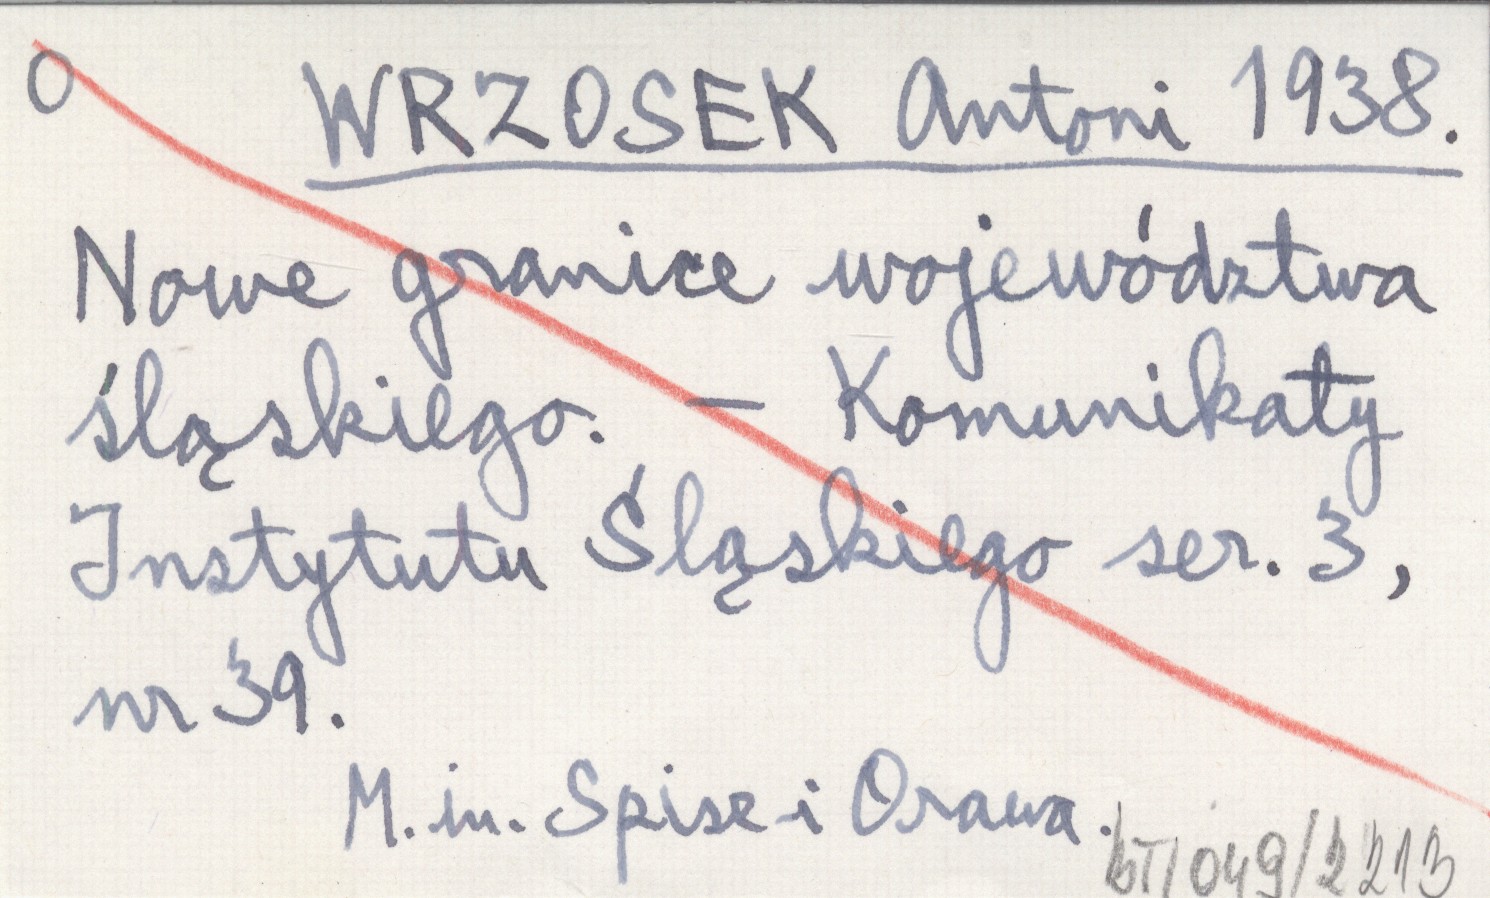 O WRZOSEK Antoni 1938.
Nowe granice województwa
śląskiego. — Komunikaty
Instytutu Śląskiego ser. 3,
nr 39.
M. in. Spisz i Orawa.
049/2213